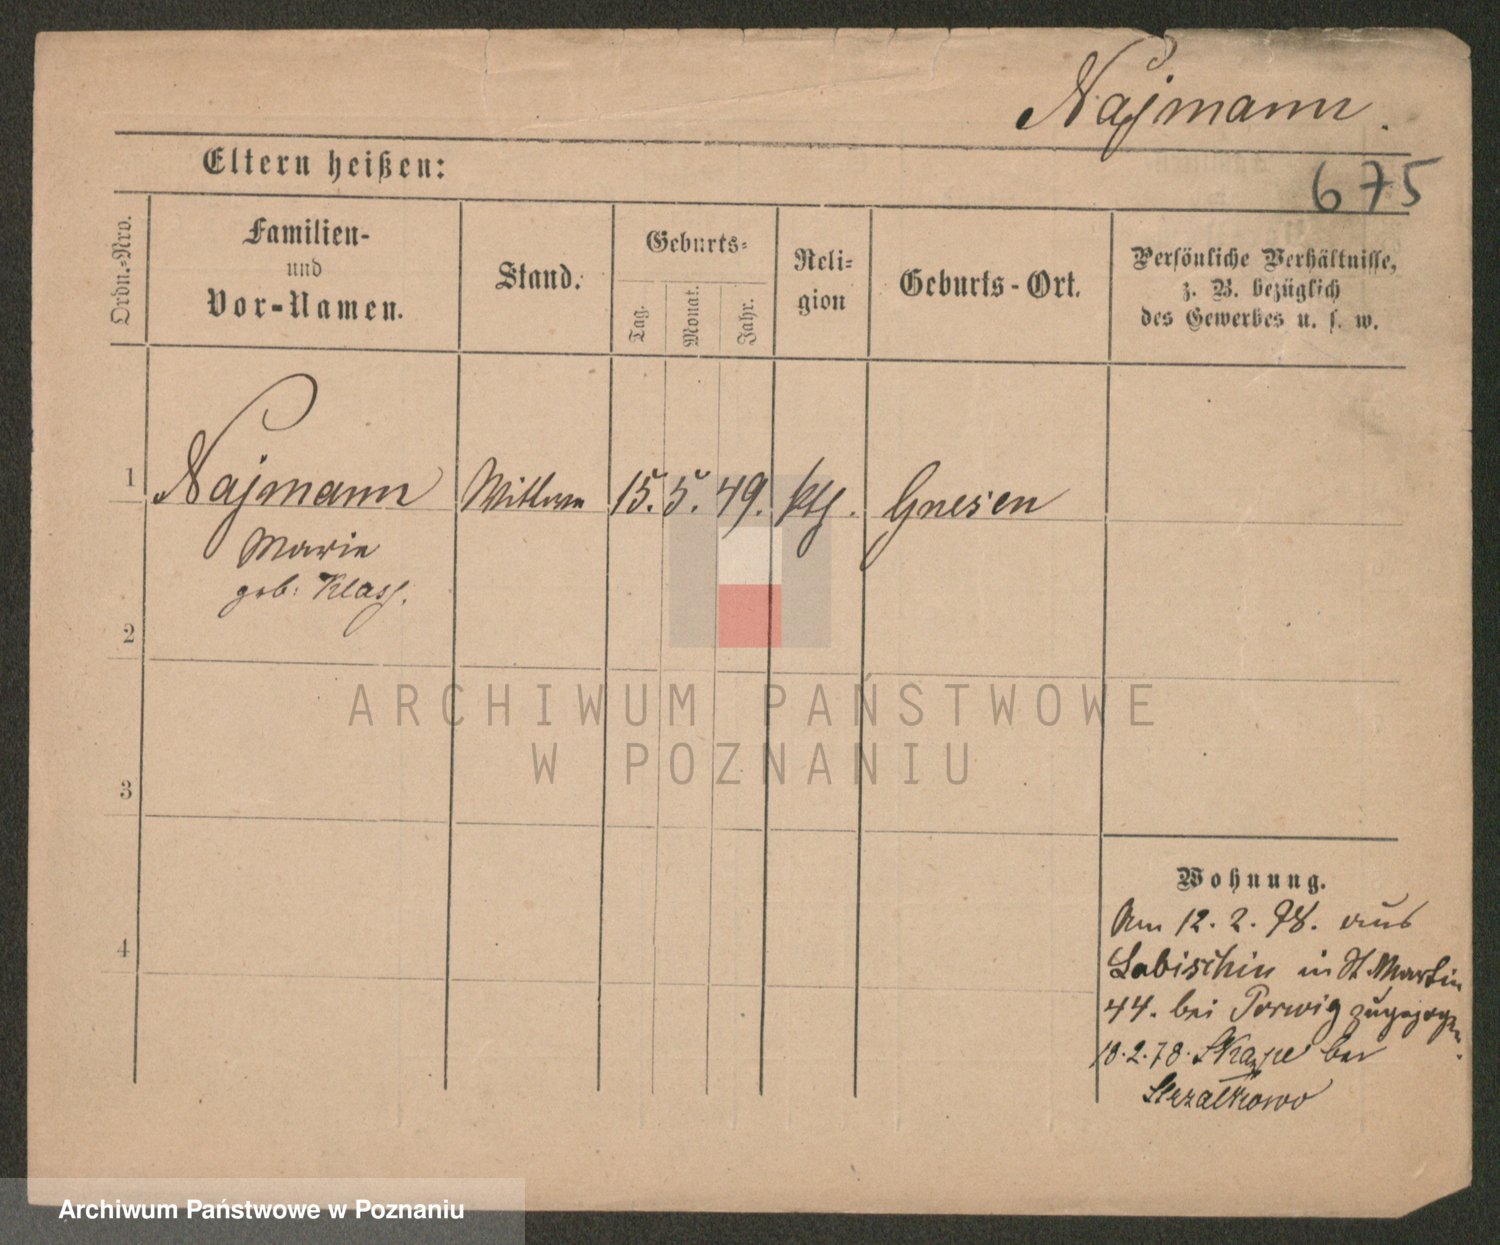 Najmann.
675
Eltern heißen:
Ordn.-Nro.
Familien-
und
Vor-Namen.
Stand.
Geburts-
Tag.
Monat.
Jahr.
Reli-
gion
Geburts-Ort.
Persönliche Verhältnisse,
z. B. bezüglich
des Gewerbes u. s. w.
1 Najmann Wittwe 15. 5. 49. kth. Gnesen
Marie
geb: Klass.
2
ARCHIWUM PAŃSTWOWE
W POZNANIU
3
Wohnung.
Am 12. 2. 78. aus
Labischin in St Martin
44. bei Porwig zugezogen.
18.2.78. bei
Strzałkowo
4
Archiwum Państwowe w Poznaniu